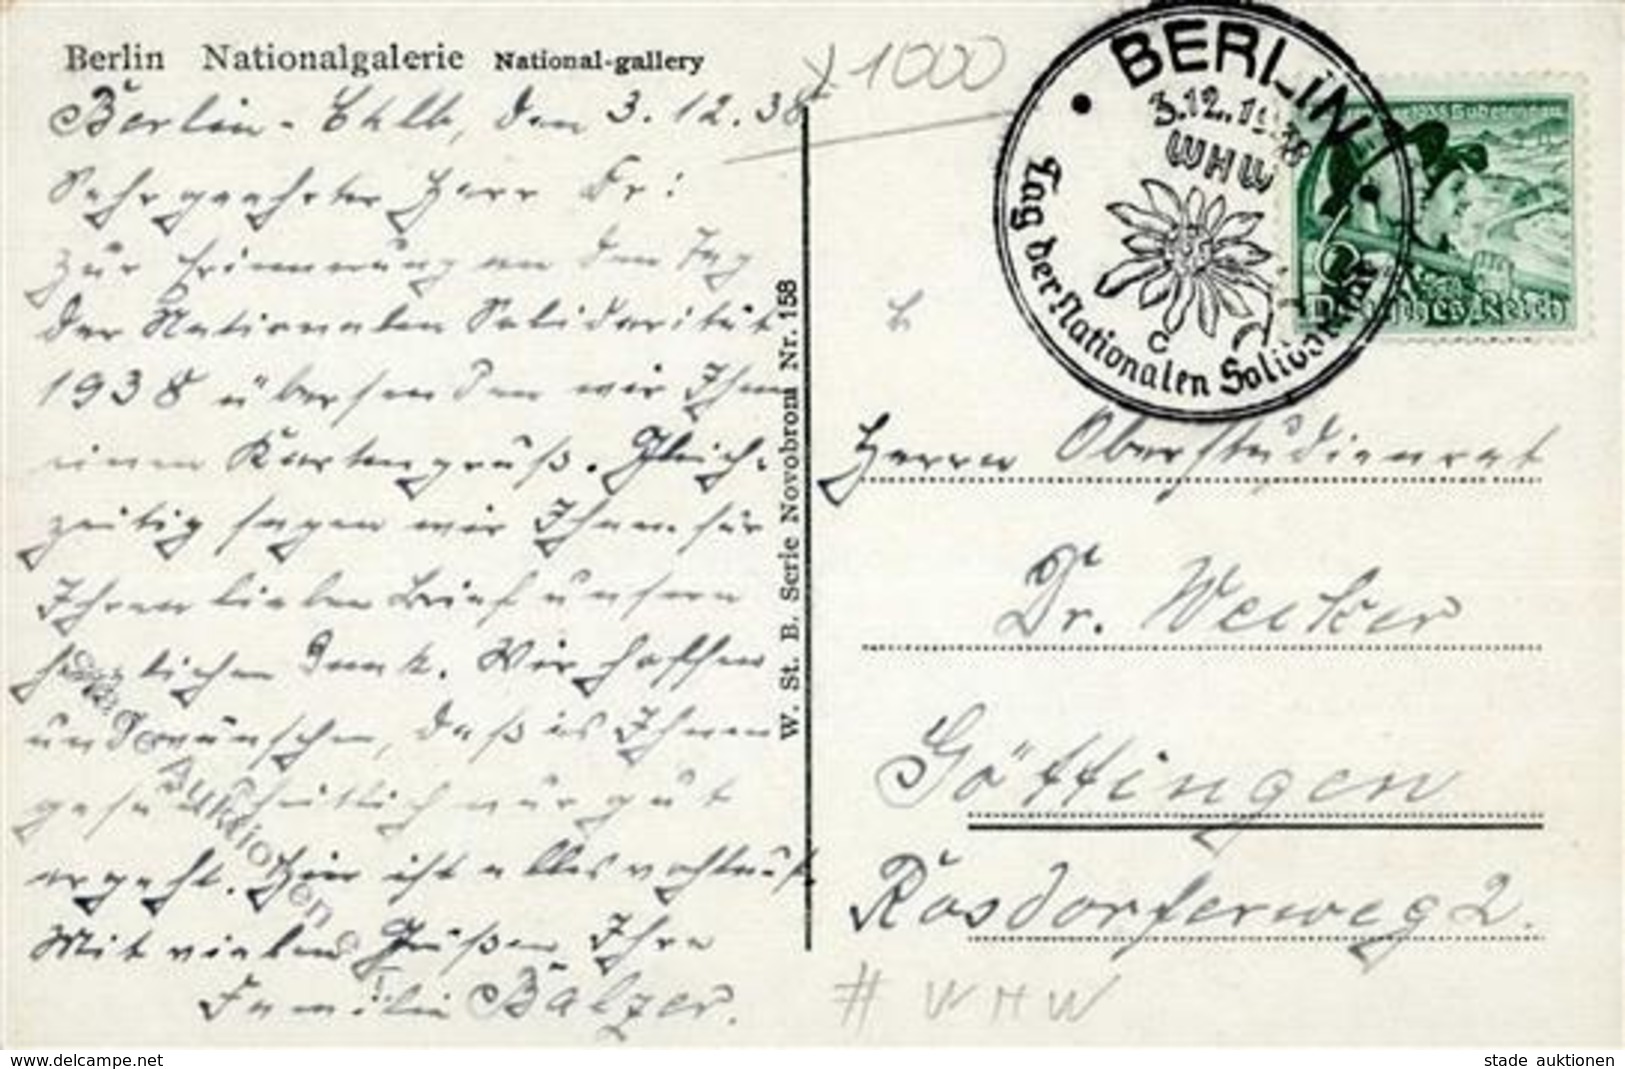 Berlin Nationalgalerie National-gallery
Berlin-Ehlb, den 3.12.38
Sehr geehrter Herr Dr:
zur Erinnerung an den Tag
der Nationalen Solidarität
1938 übersenden wir Ihnen
einen Kartengruß. Gleich-
zeitig sagen wir Ihnen für
Ihren lieben Brief unsern
herzlichen Dank. Wir hoffen
und wünschen, daß es Ihnen
gesundheitlich nur gut
ergeht. Hier ist alles
Mit vielen Grüßen Ihre
Familie Balzer.
W. St. B. Serie Novobrom Nr. 158
1000
BERLIN
3.12.1938
WHW
C
Tag der Nationalen Solidarität
1938 Sudetenland
6
Deutsches Reich
Herrn Oberstudienrat
Dr. Wecker
Göttingen
Rosdorferweg 2.
# WHW
Auktionen
www.delcampe.net
stade auktionen